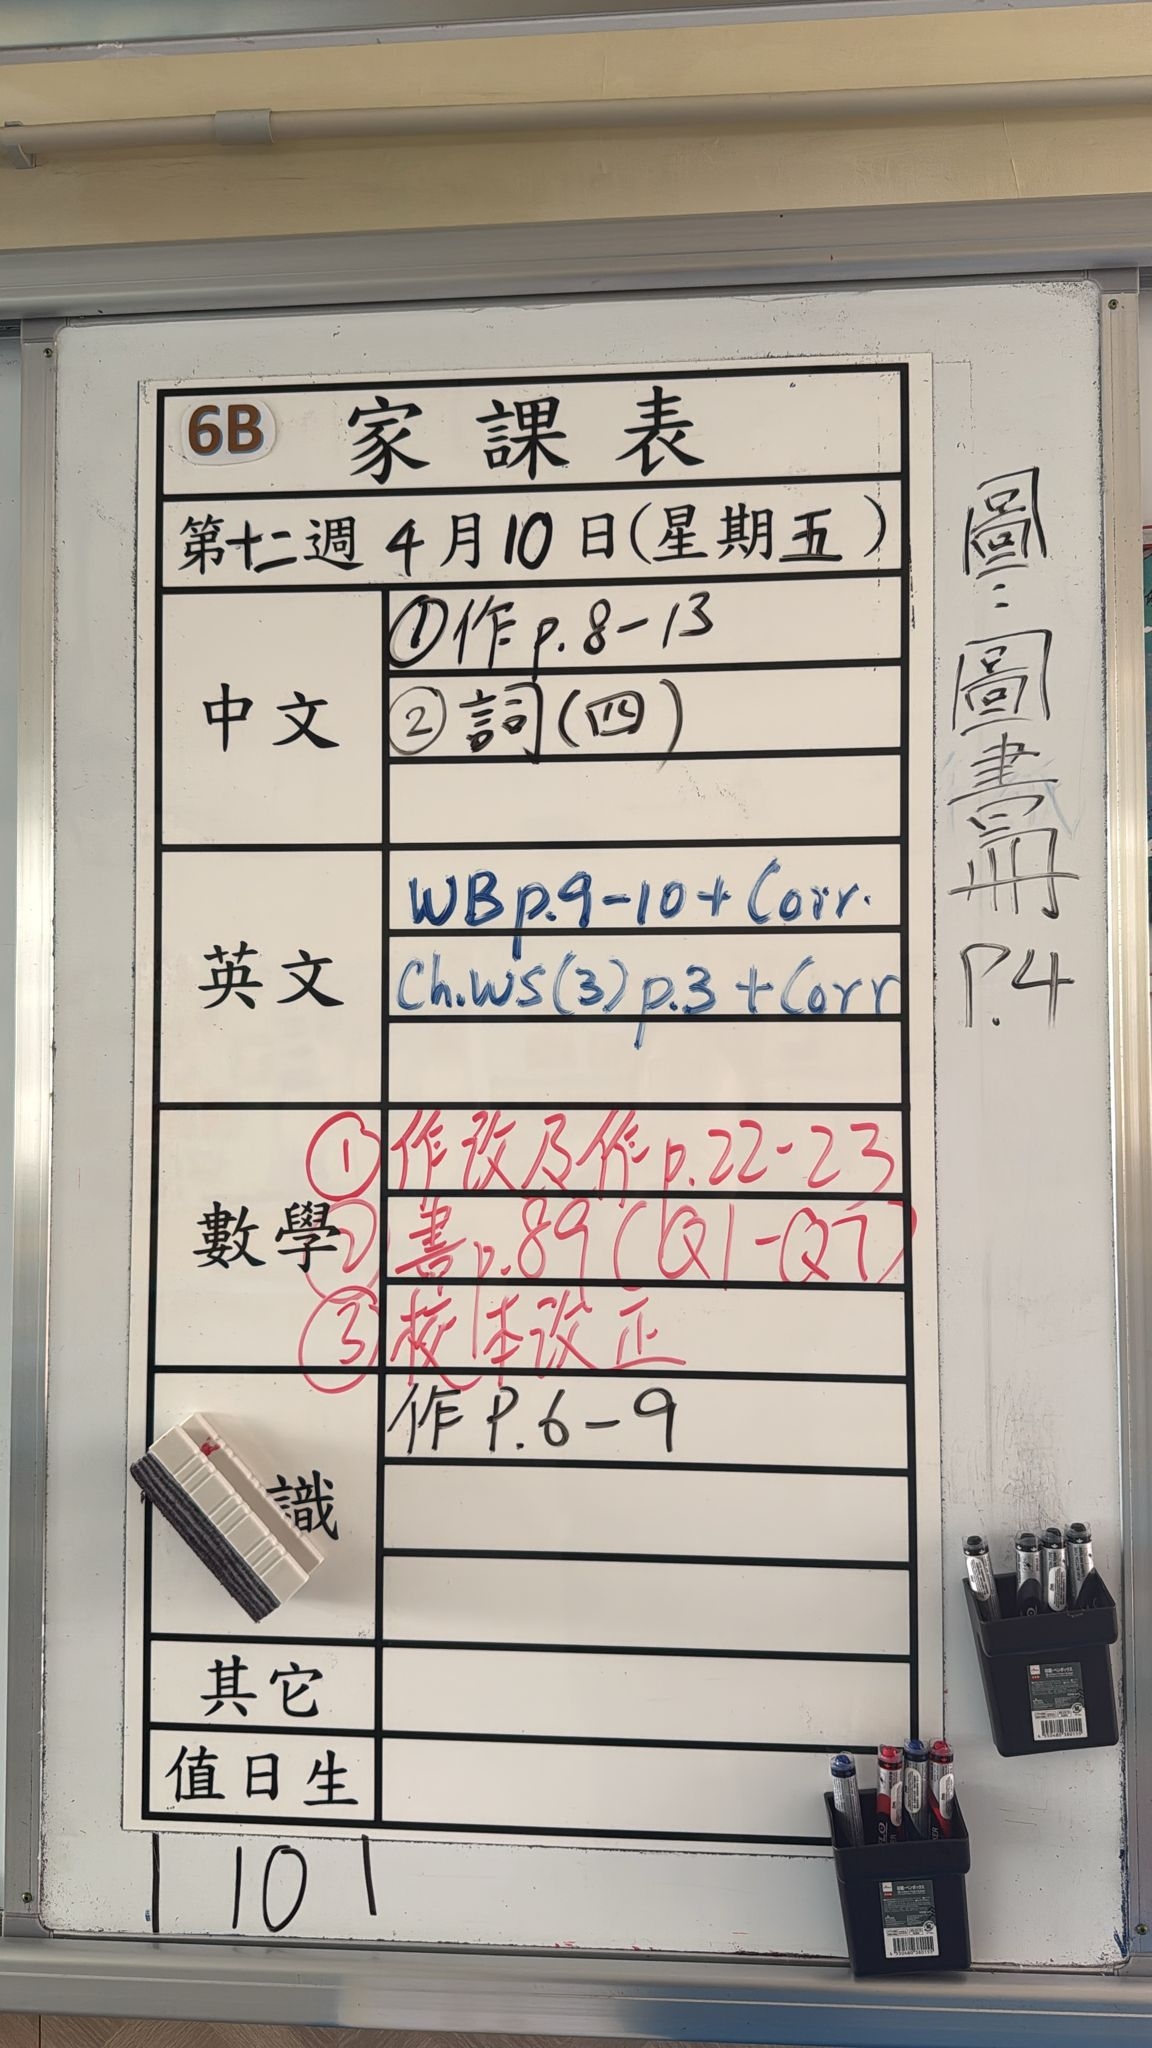 6B 家課表
第十二週 4月10日(星期五)
中文
①作p.8-13
②詞(四)
英文
WB p.9-10 + Corr.
Ch.WS(3) p.3 + Corr
數學
①作改及作p.22-23
②書p.89(Q1-Q7)
③校本改正
識
作P.6-9
其它
值日生
圖:圖書冊P.4
1 10 1